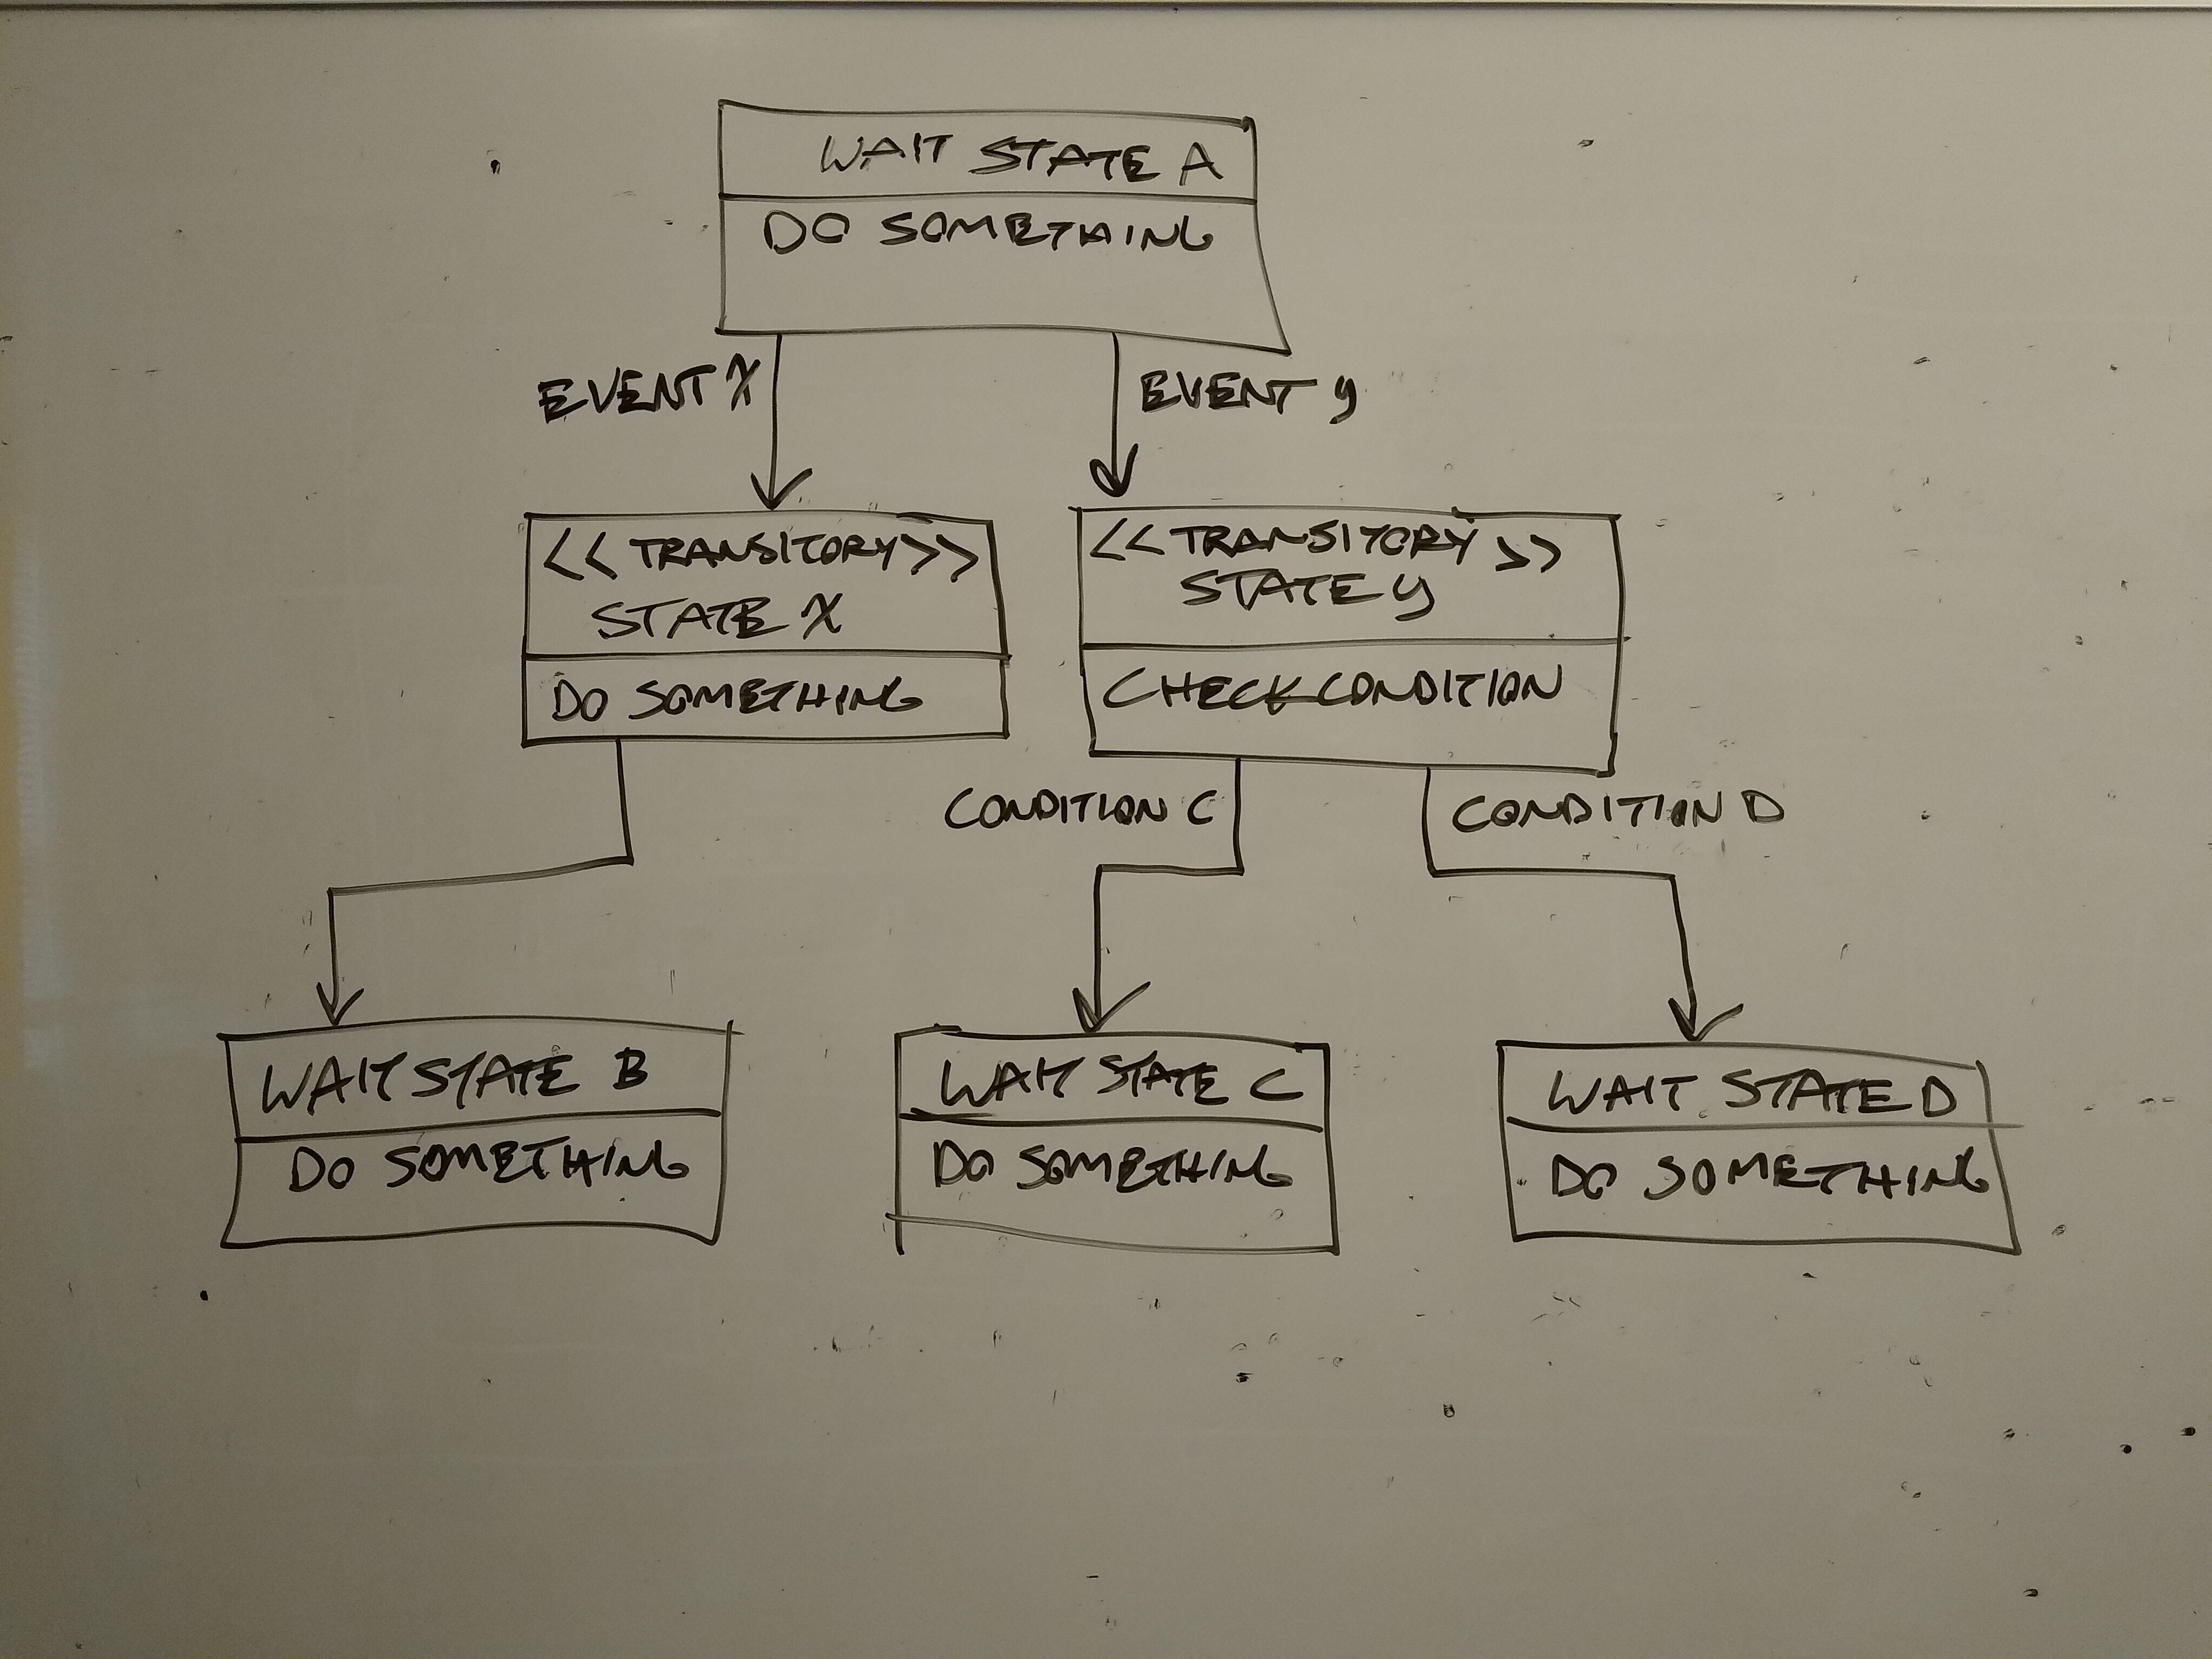 WAIT STATE A
DO SOMETHING
EVENT X
EVENT Y
<< TRANSITORY >>
STATE X
DO SOMETHING
<< TRANSITORY >>
STATE Y
CHECK CONDITION
CONDITION C
CONDITION D
WAIT STATE B
DO SOMETHING
WAIT STATE C
DO SOMETHING
WAIT STATE D
DO SOMETHING